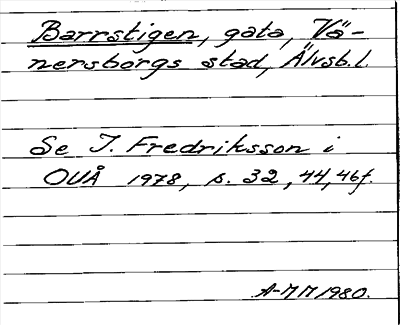 Barrstigen, gata, Vä-
nersborgs stad, Älvsb.l.
Se I. Fredriksson i
OUÅ 1978, s. 32, 44, 46f.
A-MM 1980.